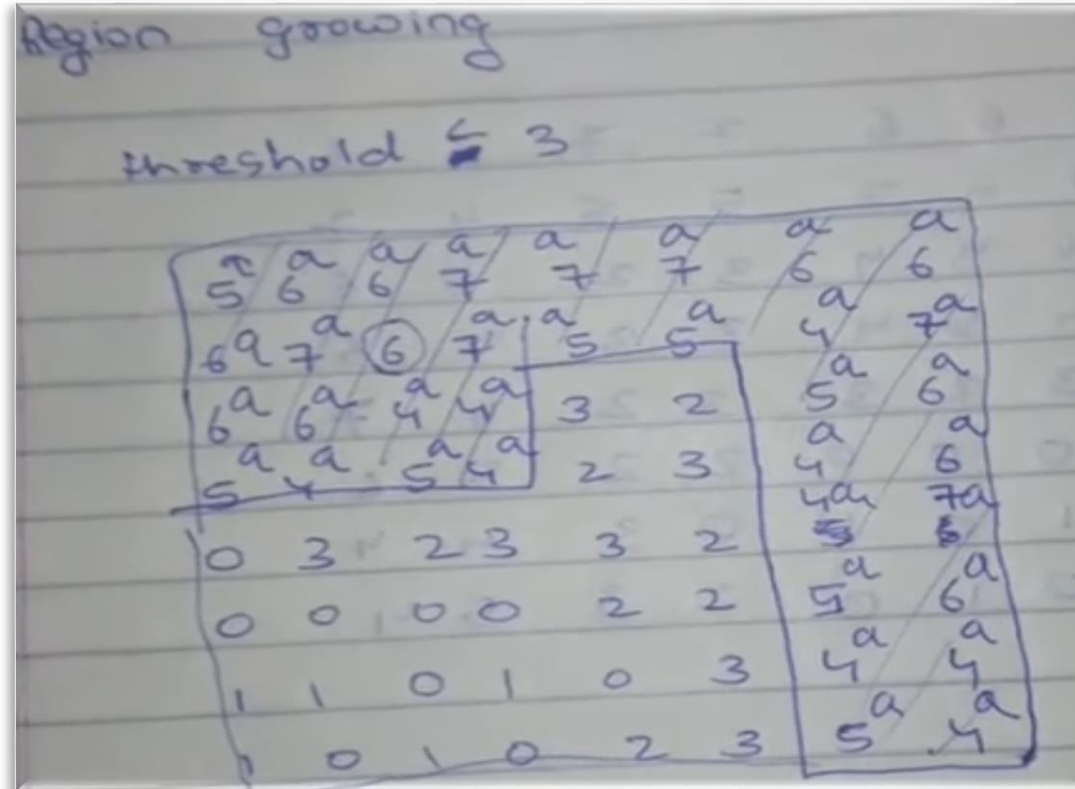 Region growing
threshold ≤ 3
5a 6a 6a 7a 7a 7a 6a 6a
6a 7a 6 7a 5a 5a 4a 7a
6a 6a 4a 4a 3 2 5a 6a
5a 4a 5a 4a 2 3 4a 6a
0 3 2 3 3 2 4a 7a
0 0 0 0 2 2 5a 6a
1 1 0 1 0 3 4a 4a
1 0 1 0 2 3 5a 4a